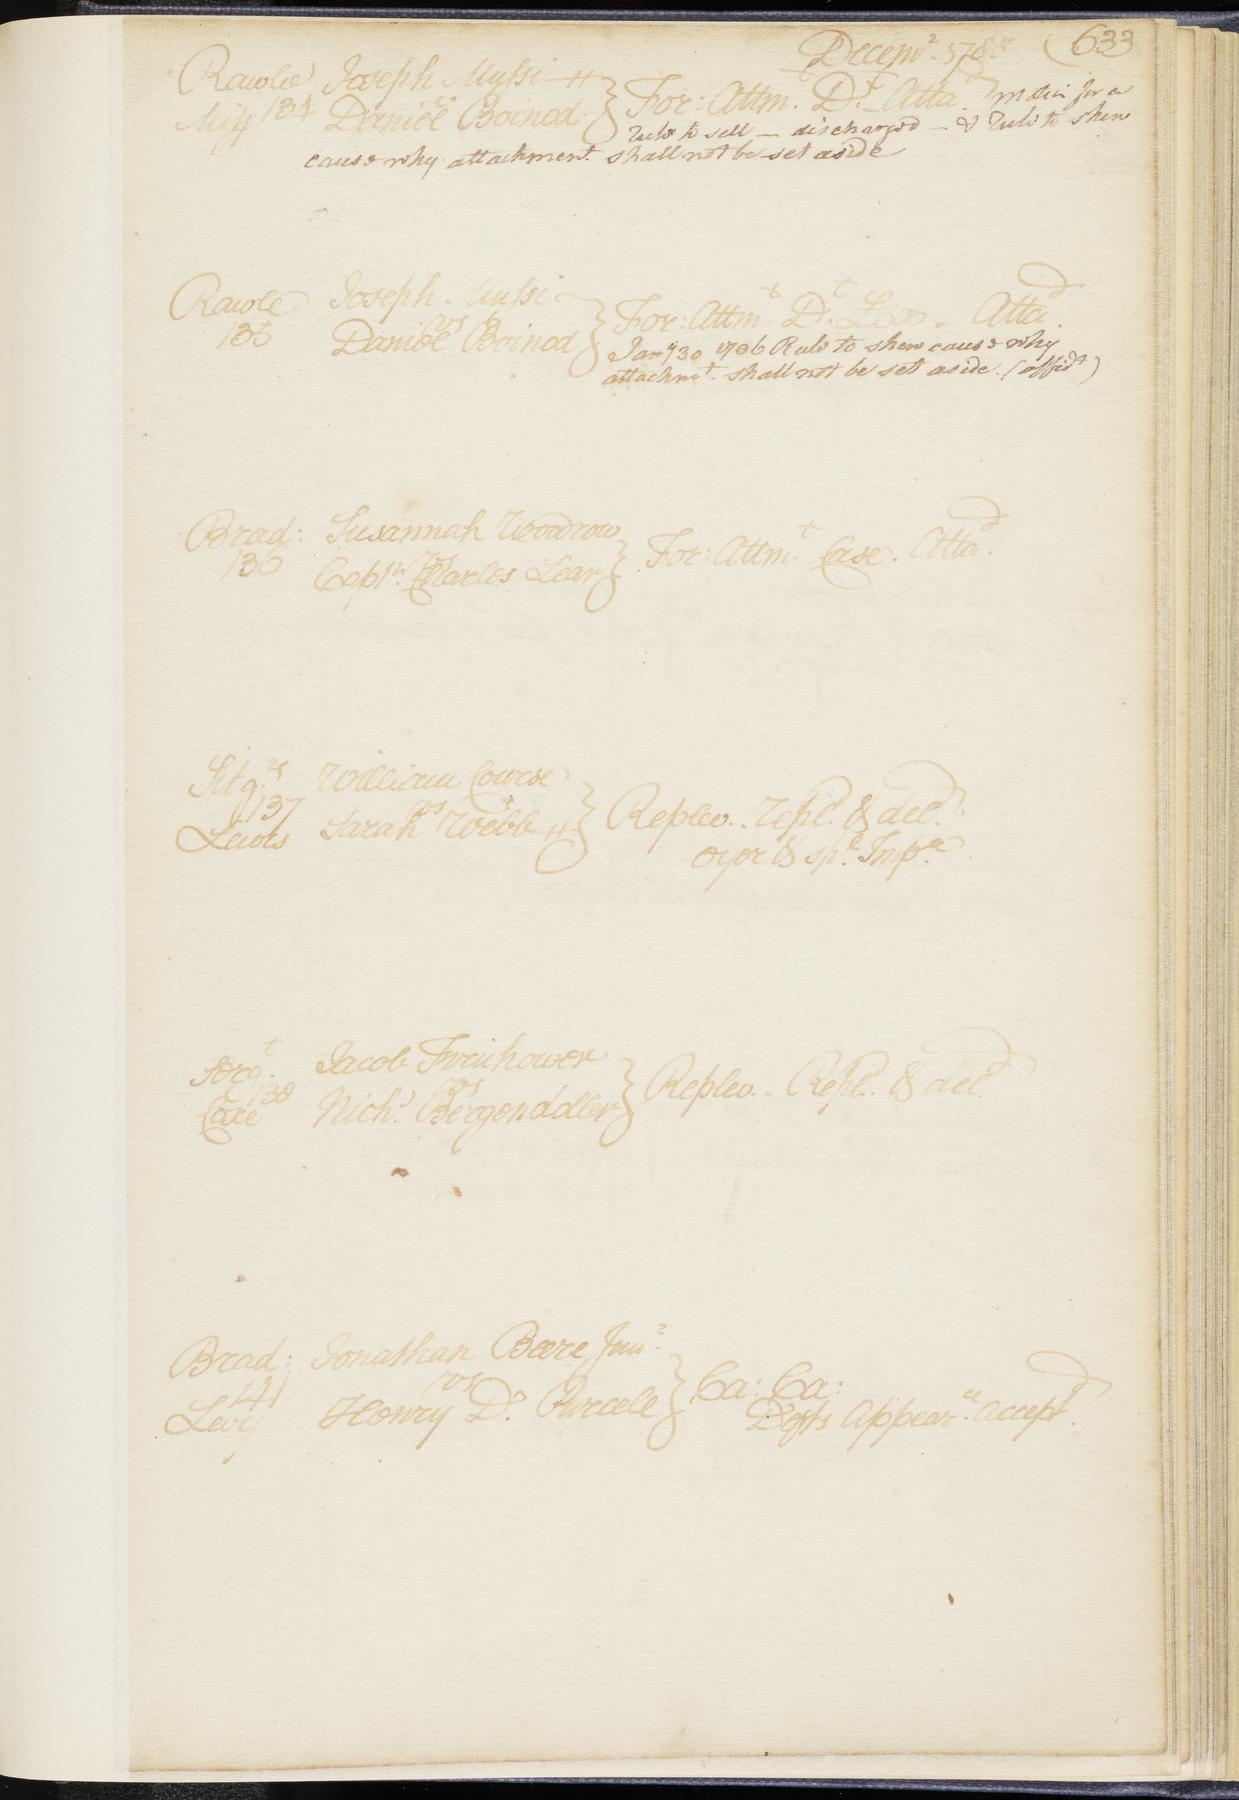 Decemr. 1785 (633
Rawle Joseph Mussi
134 vs
Daniel Boinod } For: Attmt. Dt. Attad. motion for a
Rule to sell — discharged — & Rule to shew
cause why attachment. shall not be set aside
Rawle Joseph Mussi
135 vs
Daniel Boinod } For: Attmt. Dt. Attad.
Jany 30 1786 Rule to shew cause why
attachmt. shall not be set aside. (affidt)
Brad: Susannah Woodrow
136 vs
Captn. Charles Lear } For: Attmt. Case. Attad.
Sergt William Course
137 vs
Lewis Sarah Webb } Replev. Repl. & deld.
oyer & spl. Impce.
Sergt. Jacob Freihower
138 vs
Nichs. Bergendoller } Replev. Repl. & deld.
Brad: Jonathan Beere Junr.
141 vs
Levy Henry D. Purcell } Ca: Ca:
Defts Appearce. accepd.